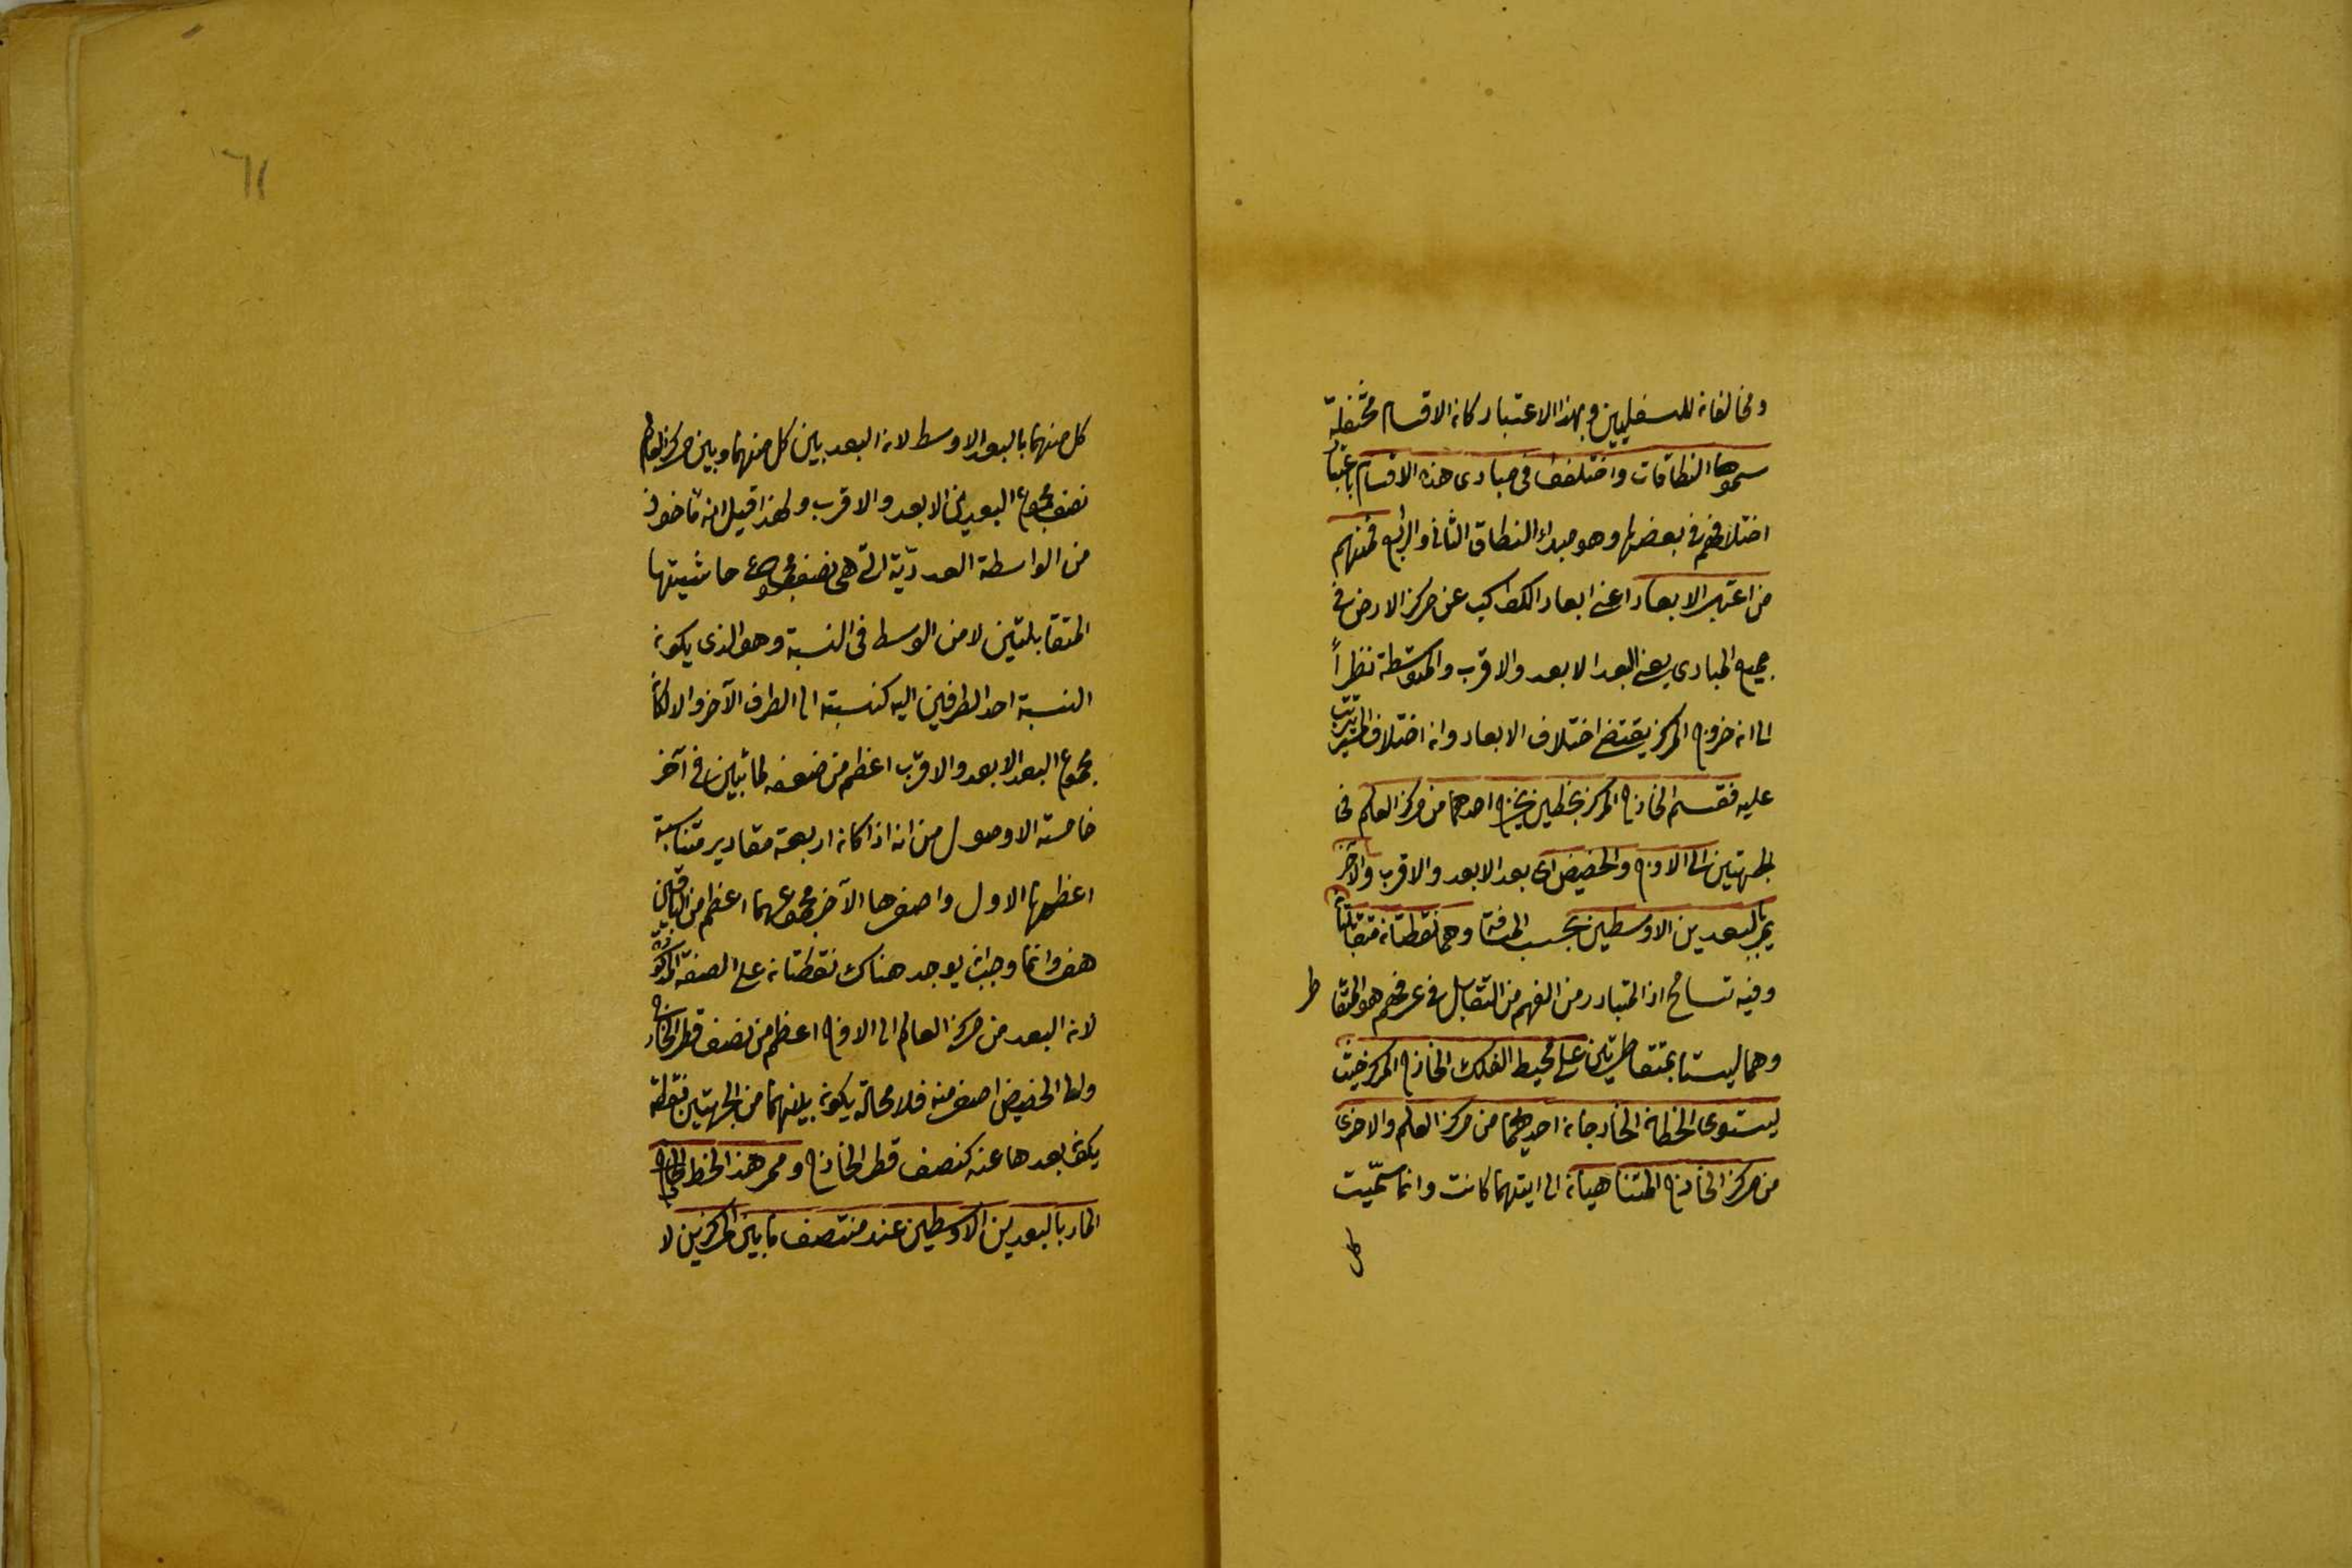 ومخالفان للسفليين وبهذا الاعتبار كان الاقسام مختلفة
سموها النطاقات واختلفوا فى مبادى هذه الاقسام باعتبار
اختلافهم فى بعضها وهو مبدأ النطاق الثانى والرابع فمنهم
من اعتبر الابعاد اعنى ابعاد الكواكب عن مركز الارض فى
جميع المبادى يعنى البعد الابعد والاقرب والمتوسطة نظراً
الى ان خروج المركز يقتضى اختلاف الابعاد وان اختلاف المسير يترتب
عليه فقسم الخارج المركز بخطين يخرج احدهما من مركز العالم فى
الجهتين الى الاوج والحضيض اى بعد الابعد والاقرب والآخر
يمر بالبعدين الاوسطين بحسب المسافة وهما نقطتان متقابلتان
وفيه تسامح اذ المتبادر من الفهم من التقابل فى عرفهم هو التقاطر
وهما ليستا بمتقاطرتين على محيط الفلك الخارج المركز حيث
يستوى الخطان الخارجان احدهما من مركز العالم والاخرى
من مركز الخارج المتناهيان الى ايتهما كانت وانما سمّيت
كل
٦١
كل منهما بالبعد الاوسط لان البعد بين كل منهما وبين مركز العالم
نصف مجموع البعدين الابعد والاقرب ولهذا قيل انه مأخوذ
من الواسطة العدديّة التى هى نصف مجموع حاشيتها
المتقابلتين لا من الوسط فى النسبة وهو الذى يكون
النسبة احد الطرفين اليه كنسبته الى الطرف الآخر والا لكان
مجموع البعد الابعد والاقرب اعظم من ضعفه لما تبين فى آخر
خامسة الاوصول من انه اذا كان اربعة مقادير متناسبة
اعظمها الاول واصغرها الآخر مجموعهما اعظم من الباقيين
هف وانما وجب ان يوجد هناك نقطتان على الصفة المذكورة
لان البعد من مركز العالم الى الاوج اعظم من نصف قطر الخارج
والى الحضيض اصغر منه فلا محالة يكون بينهما من الجهتين نقطة
يكون بعدها عنه كنصف قطر الخارج وممر هذا الخط
المار بالبعدين الاوسطين عند منتصف ما بين المركزين لا